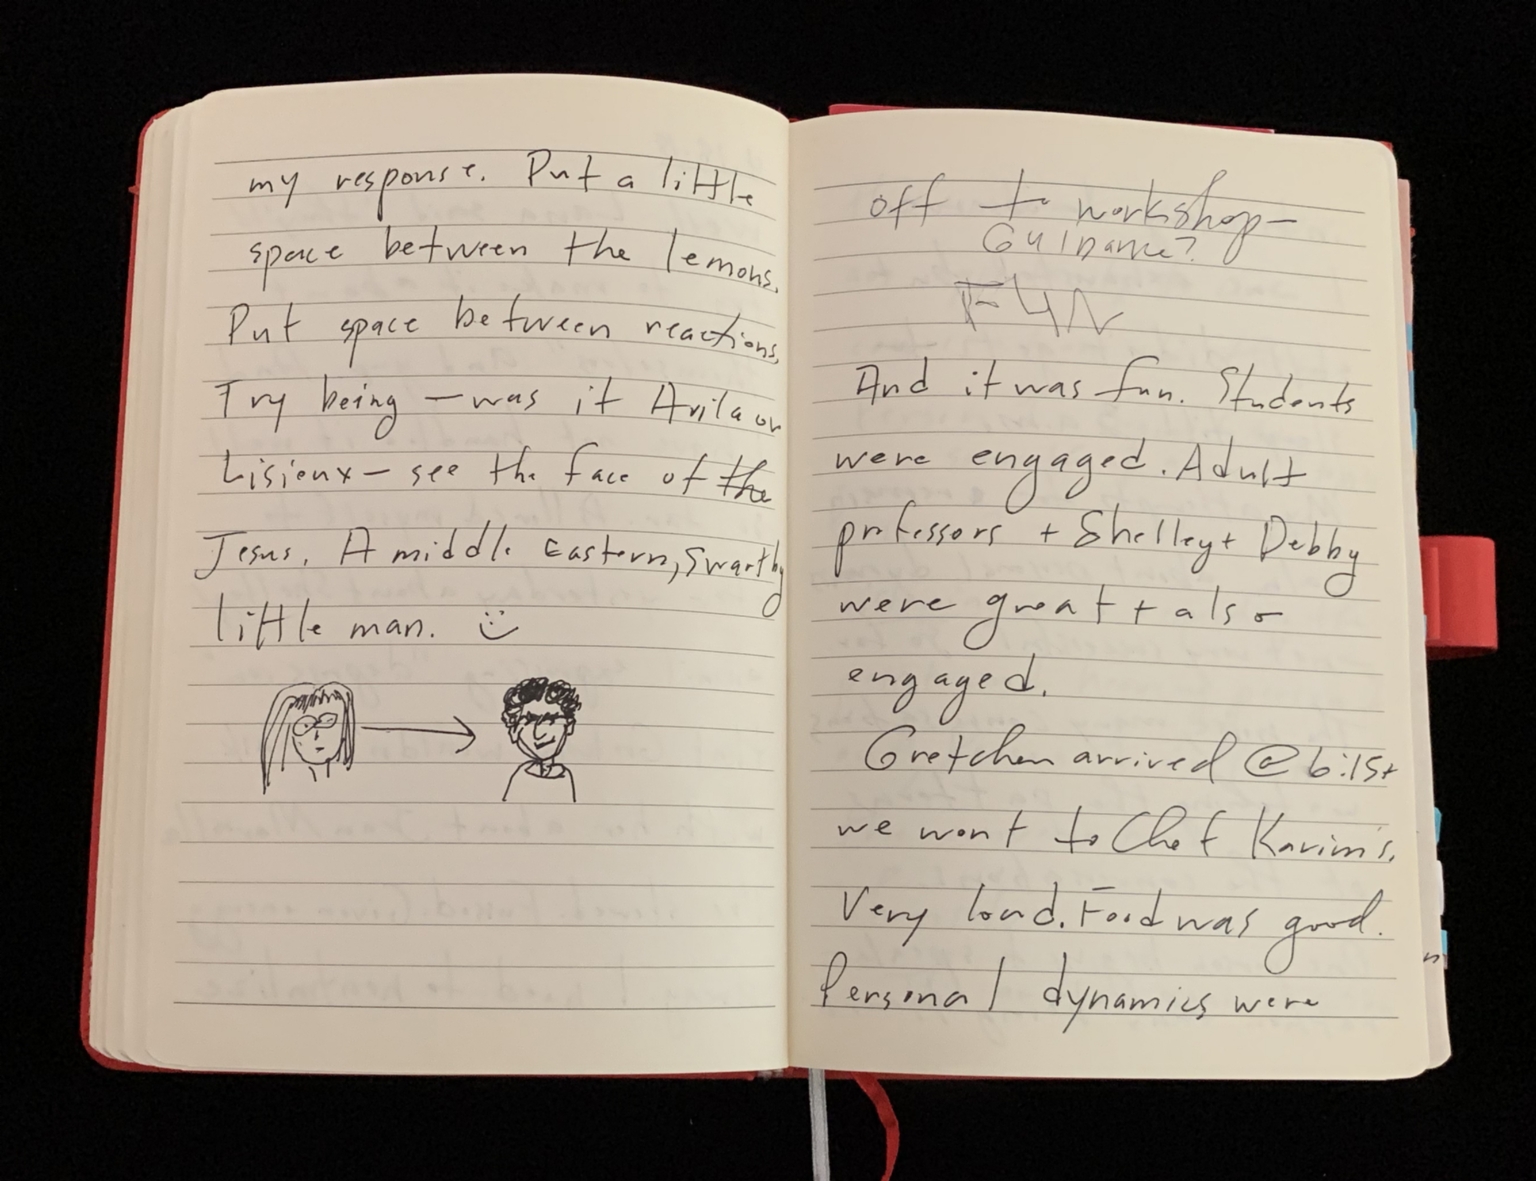 my response. Put a little
space between the lemons.
Put space between reactions.
Try being – was it Avila or
Lisieux – see the face of the
Jesus. A middle Eastern, Swarthy
little man. :)
off to workshop –
Guidance?
FUN
And it was fun. Students
were engaged. Adult
professors + Shelley + Debby
were great + also
engaged.
Gretchen arrived @ 6:15 +
we went to Chef Karim's.
Very loud. Food was good.
Personal dynamics were